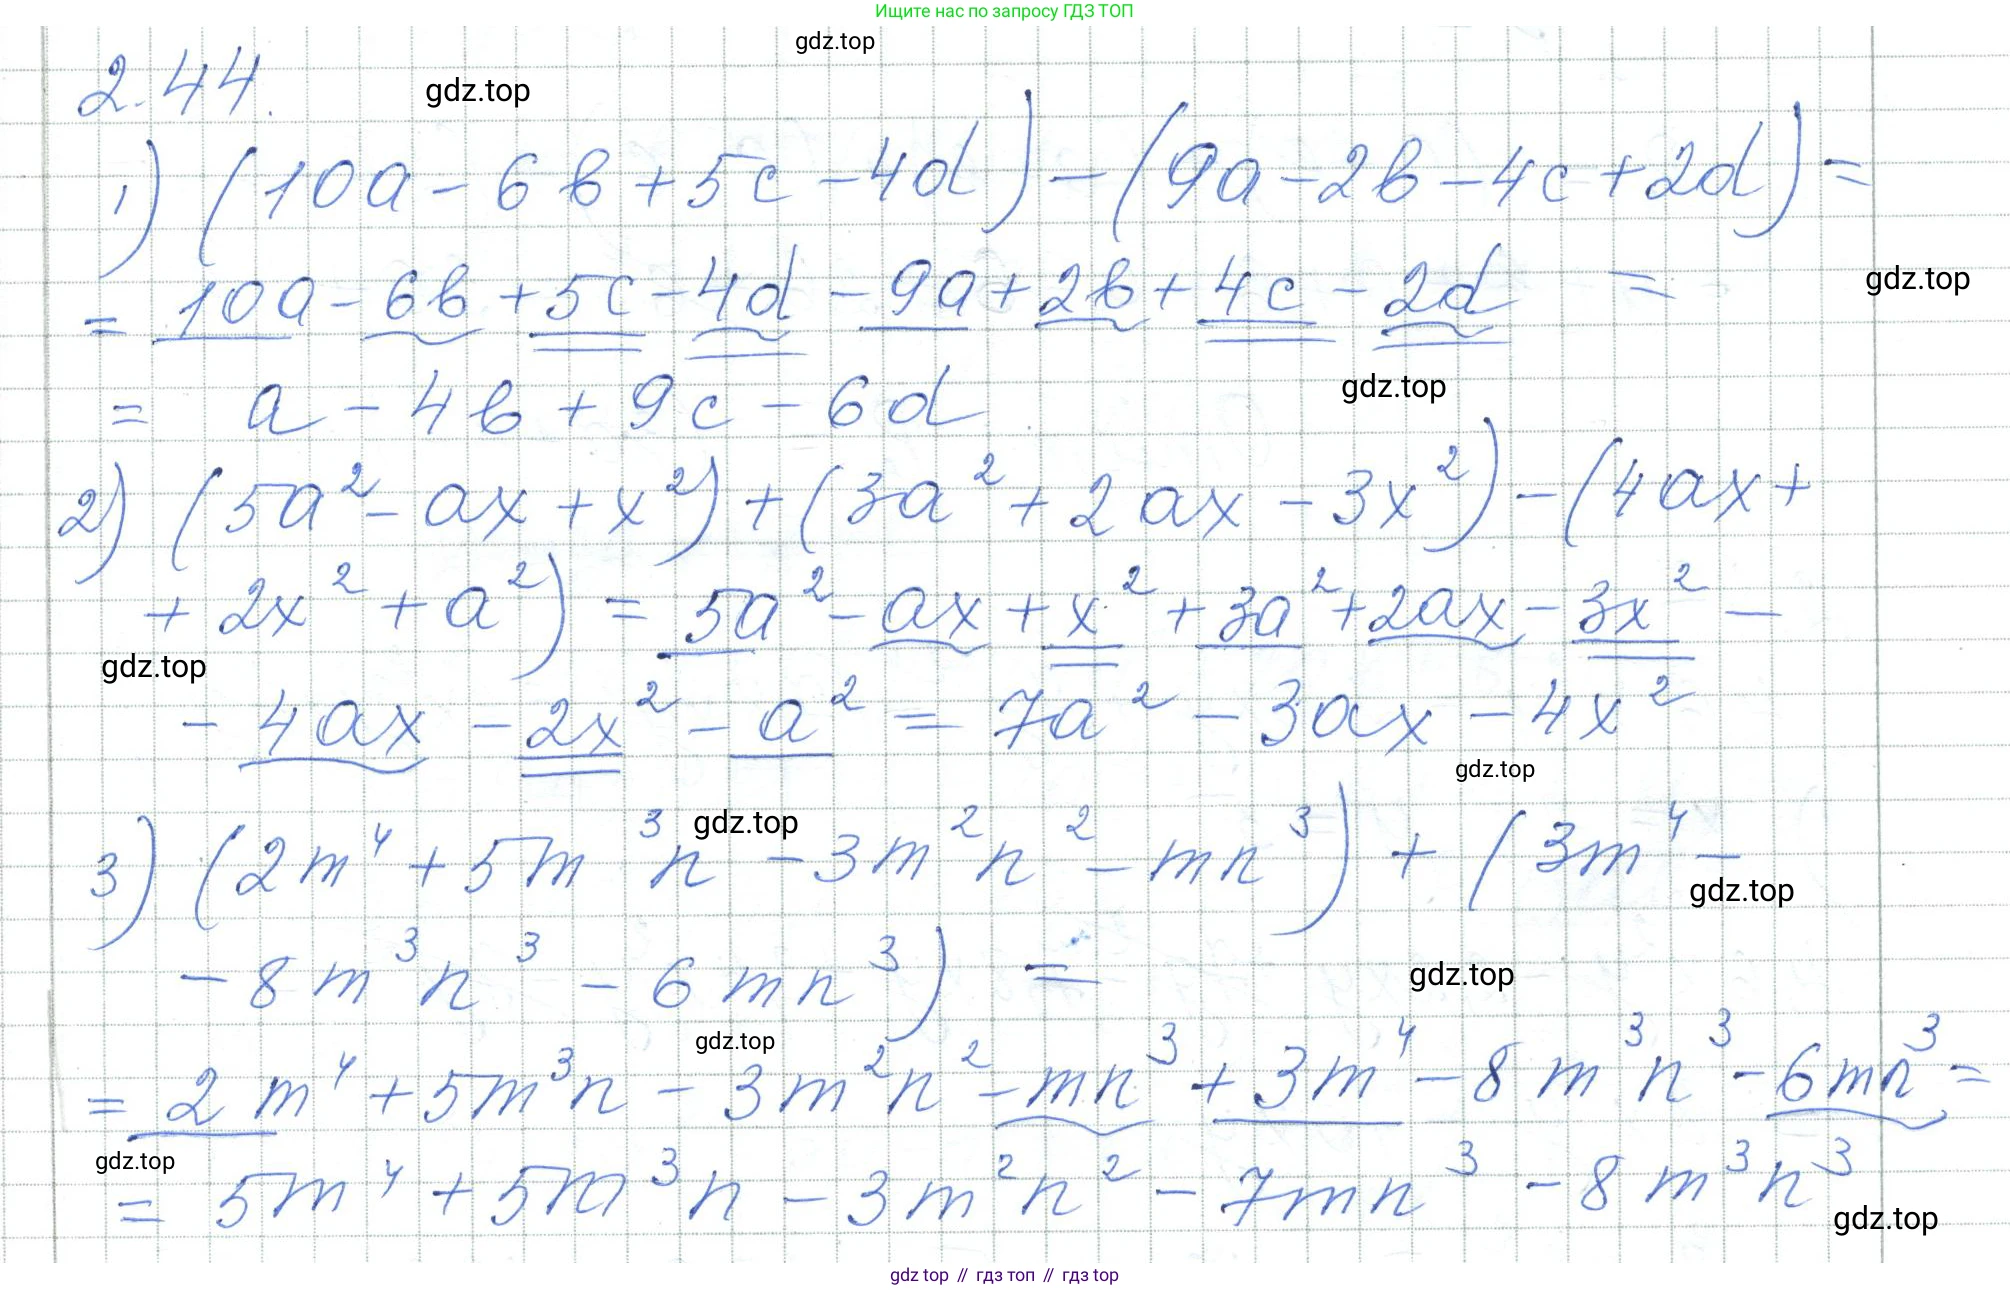 Ищите нас по запросу ГДЗ ТОП
gdz.top
2.44. gdz.top
1) (10a - 6b + 5c - 4d) - (9a - 2b - 4c + 2d) =
= 10a - 6b + 5c - 4d - 9a + 2b + 4c - 2d =
gdz.top
= a - 4b + 9c - 6d
gdz.top
2) (5a² - ax + x²) + (3a² + 2ax - 3x²) - (4ax +
+ 2x² + a²) = 5a² - ax + x² + 3a² + 2ax - 3x² -
gdz.top
- 4ax - 2x² - a² = 7a² - 3ax - 4x²
gdz.top
gdz.top
3) (2m⁴ + 5m³n - 3m²n² - mn³) + (3m⁴ -
gdz.top
- 8m³n³ - 6mn³) =
gdz.top
gdz.top
= 2m⁴ + 5m³n - 3m²n² - mn³ + 3m⁴ - 8m³n³ - 6mn³ =
gdz.top
= 5m⁴ + 5m³n - 3m²n² - 7mn³ - 8m³n³
gdz.top
gdz top // гдз топ // гдз top